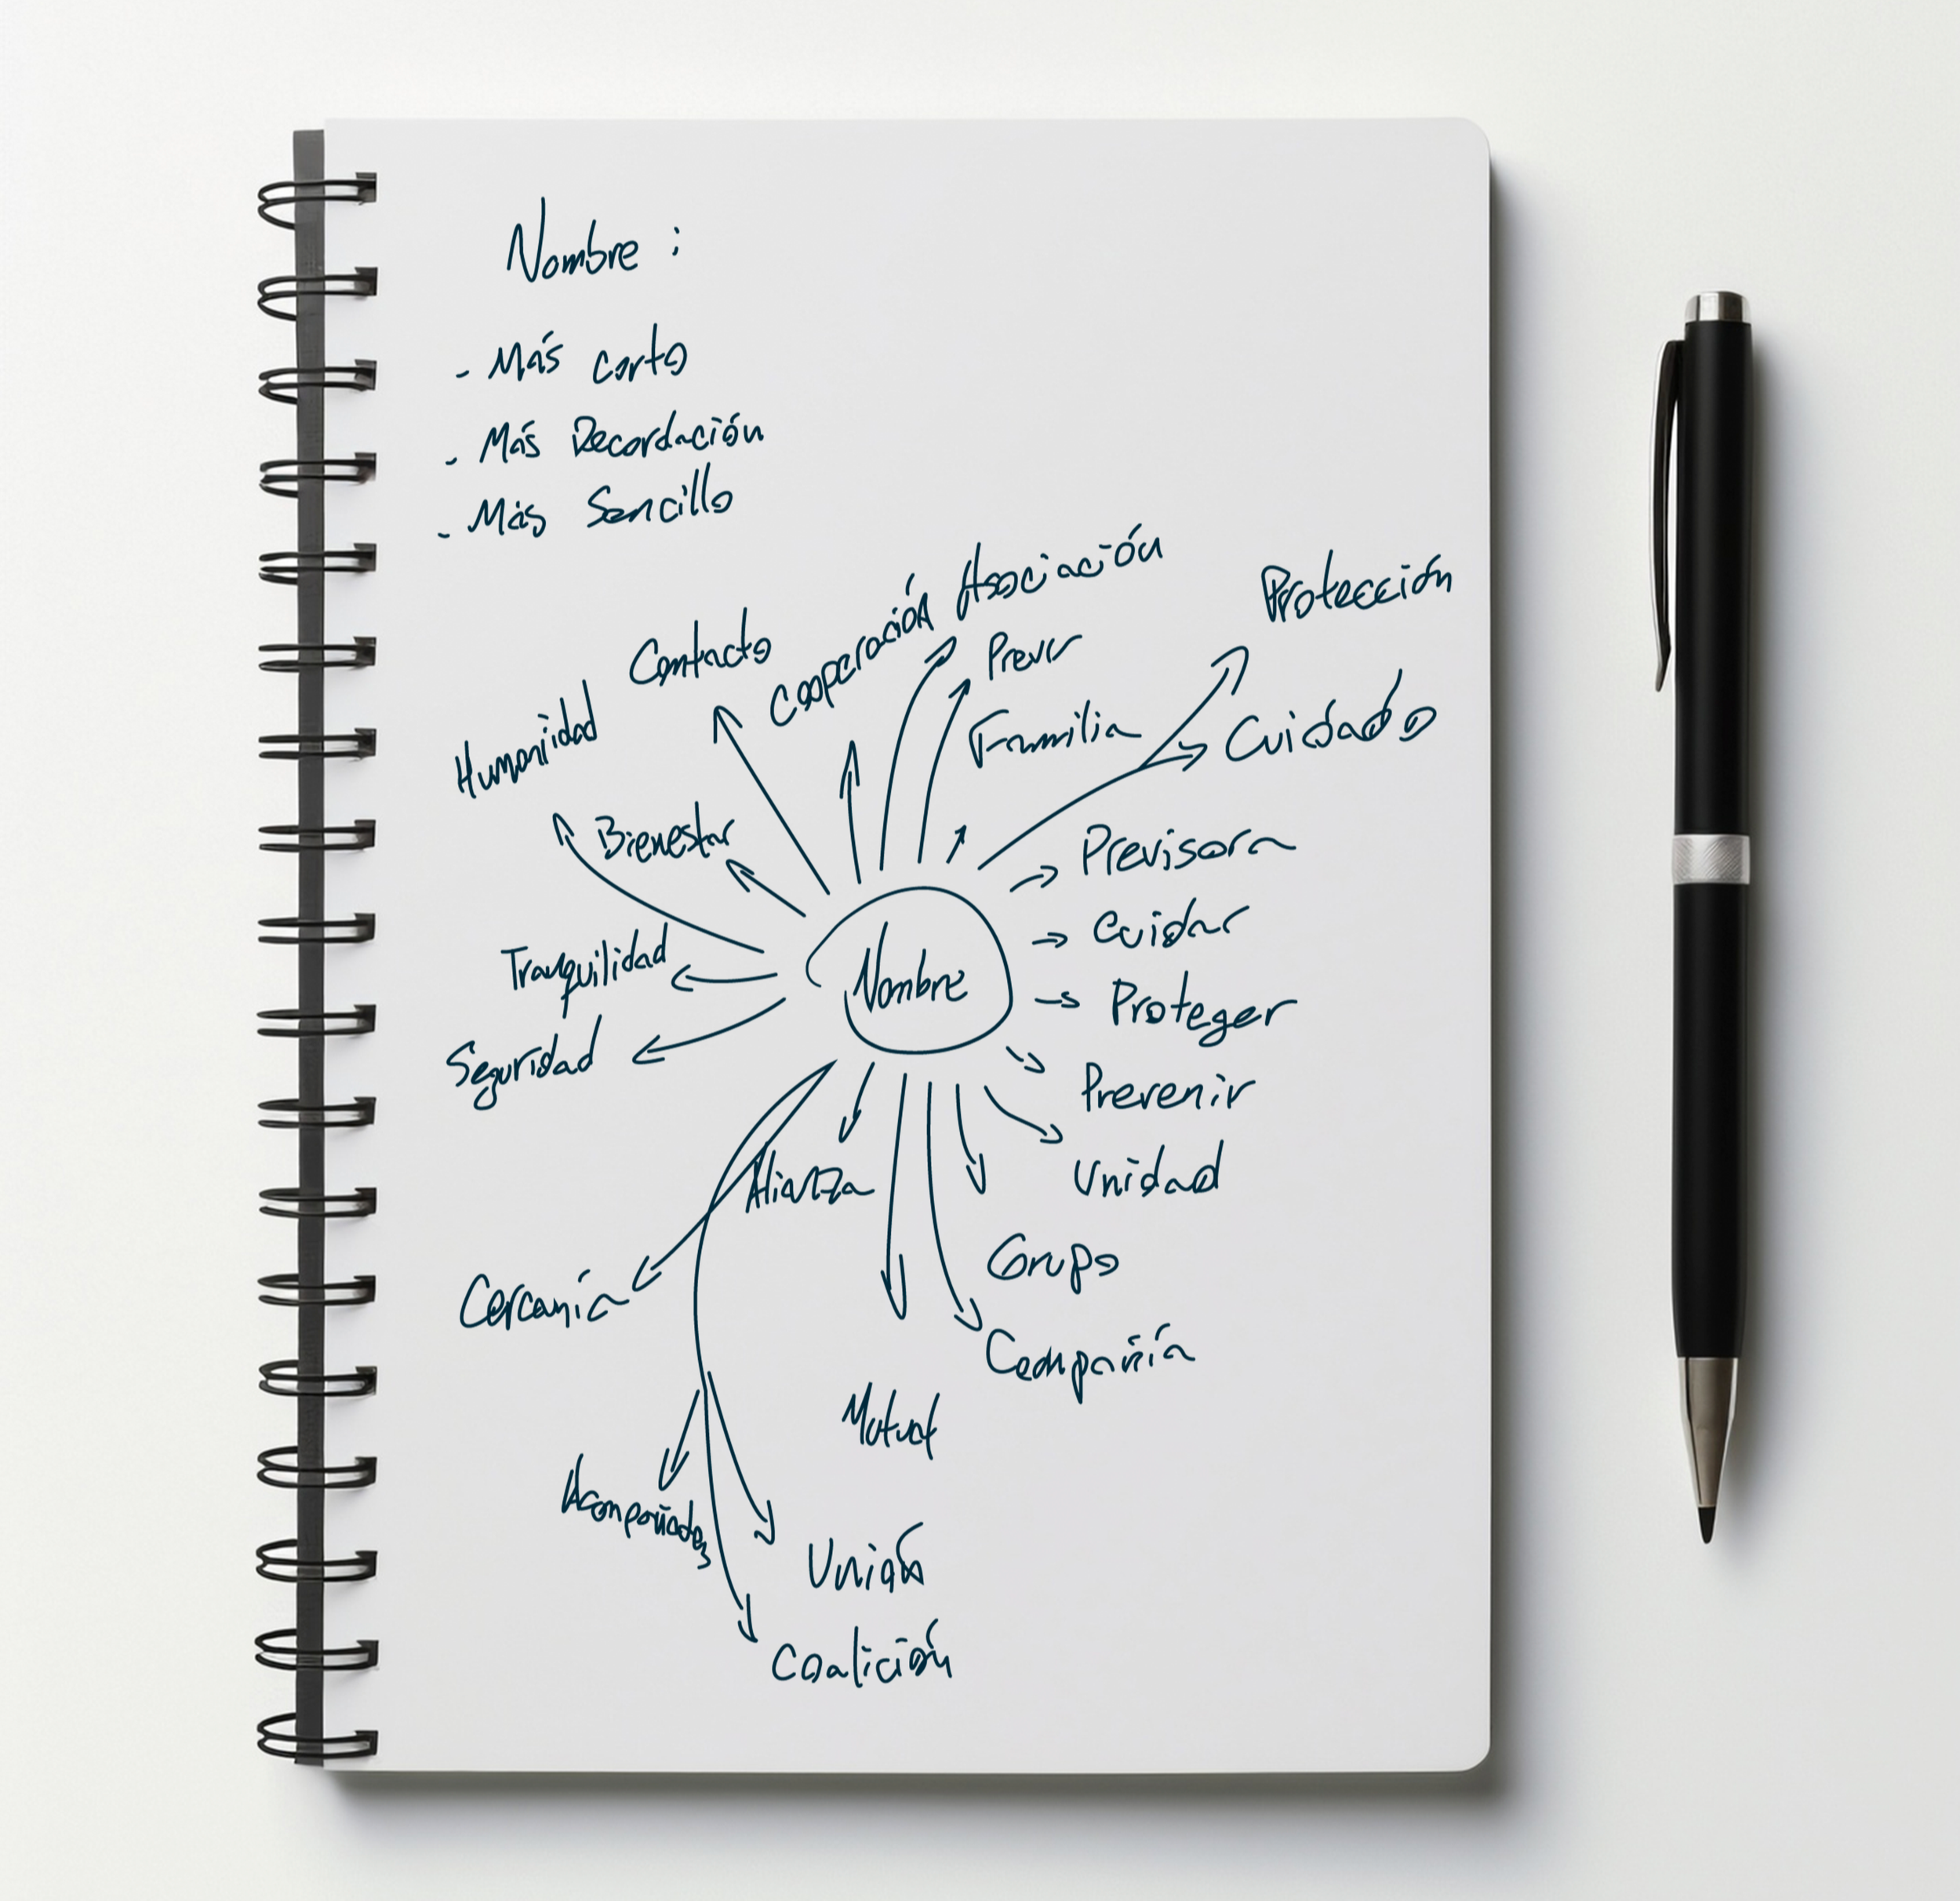 Nombre :
- Más corto
- Más Recordación
- Más Sencillo
Asociación
Protección
Cooperación
Contacto
Prever
Humanidad
Familia
Cuidado
Bienestar
Previsora
Cuidar
Tranquilidad
Nombre
Proteger
Seguridad
Prevenir
Alianza
Unidad
Grupo
Cercanía
Compañía
Mutual
Unión
Coalición